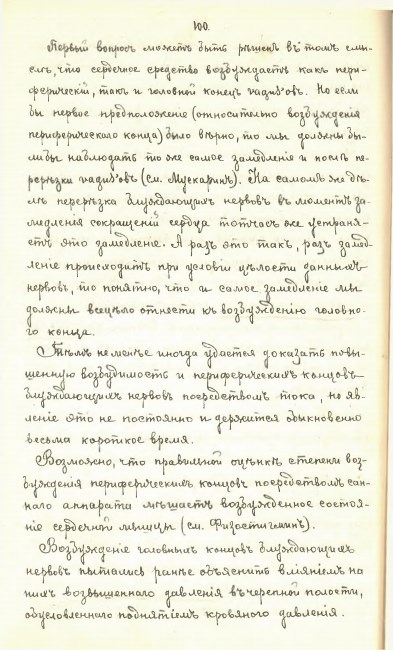 100.
Первый вопросъ можетъ быть рѣшенъ въ томъ смы-
слѣ, что сердечное средство возбуждаетъ какъ пери-
ферическiй, такъ и головной конецъ vagus'овъ. Но если
бы первое предположенiе (относительно возбужденiя
периферическаго конца) было вѣрно, то мы должны бы-
ли бы наблюдать то же самое замедленiе и послѣ пе-
рерѣзки vagus'овъ (см. Мускаринъ). На самомъ же дѣ-
лѣ перерѣзка блуждающихъ нервовъ въ моментъ за-
медленiя сокращенiй сердца тотчасъ же устраня-
етъ это замедленiе. А разъ это такъ, разъ замед-
ленiе происходитъ при условiи цѣлости данныхъ
нервовъ, то понятно, что и самое замедленiе мы
должны всецѣло отнести къ возбужденiю головно-
го конца.
Тѣмъ не менѣе иногда удается доказать повы-
шенную возбудимость и периферическихъ концовъ
блуждающихъ нервовъ посредствомъ тока, но яв-
ленiе это не постоянно и держится обыкновенно
весьма короткое время.
Возможно, что правильной оцѣнкѣ степени воз-
бужденiя периферическихъ концовъ посредствомъ сан-
наго аппарата мѣшаетъ возбужденное состоя-
нiе сердечной мышцы (см. Физостигминъ).
Возбужденiе головныхъ концовъ блуждающихъ
нервовъ пытались ранѣе объяснить влiянiемъ на
нихъ возвышеннаго давленiя въ черепной полости,
обусловленнаго поднятiемъ кровяного давленiя.